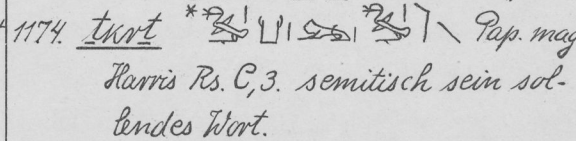 1174. ṯkrṯ Pap. mag
Harris Rs. C, 3. semitisch sein sol-
lendes Wort.